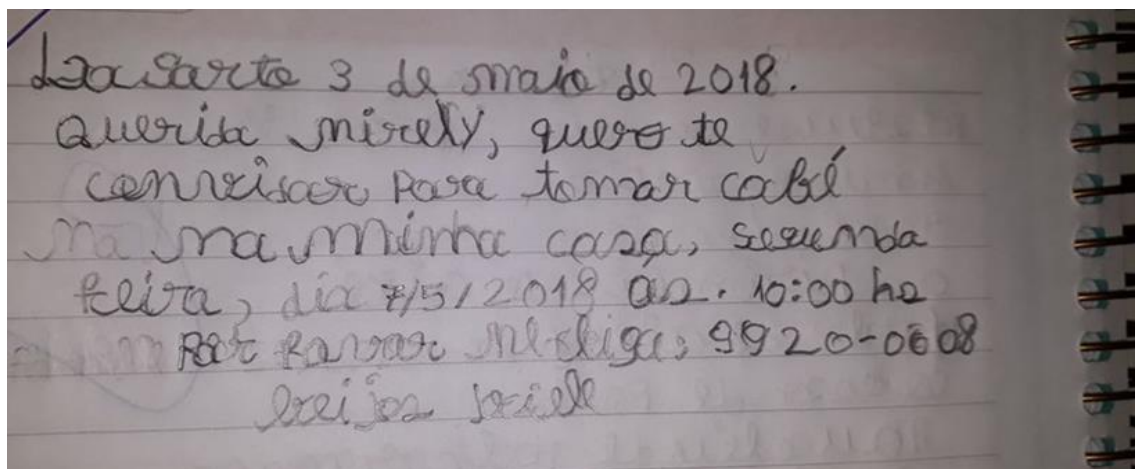 Lagarto 3 de maio de 2018.
Querida mirely, quero te
convisar para tomar cabé
na na minha casa, segunda
feira, dia 7/5/2018 as. 10:00 hs
Por favor me liga: 9920-0608
beijos